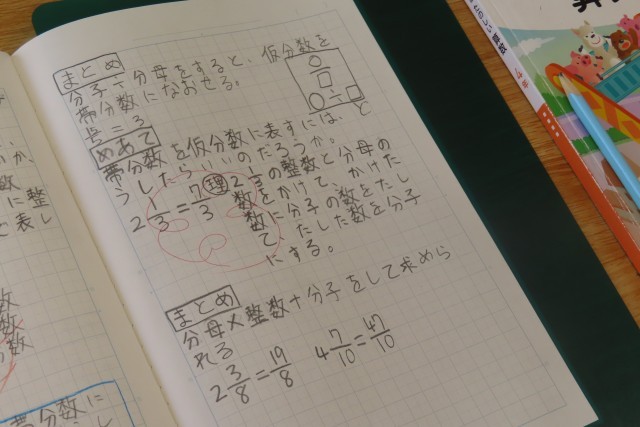 まとめ
分子÷分母をすると、仮分数を
帯分数になおせる。
○
□
○÷□
めあて
帯分数を仮分数に表すには、ど
うしたらいいのだろうか。
2 1/3 = 7/3
理 2 1/3の整数と分母の
数をかけて、かけた
数に分子の数をたし
て、たした数を分子
にする。
まとめ
分母×整数+分子をして求めら
れる
2 3/8 = 19/8
4 7/10 = 47/10
か、
に整
表し
数
数
分数
帯分数に